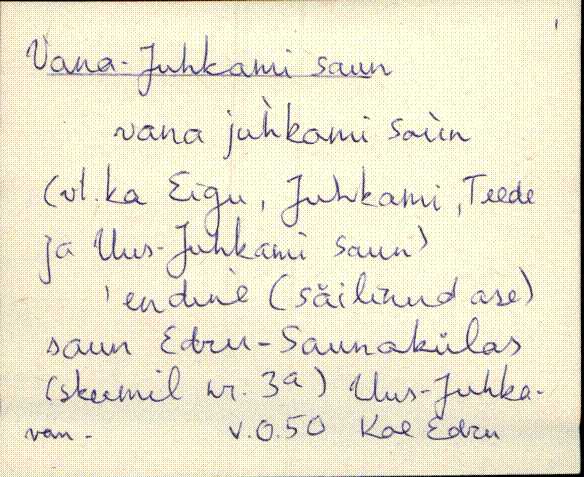 Vana-Juhkami saun
vana juh̀kami saùn
(vt. ka Eigu, Juhkami, Teede
ja Uus-Juhkami saun)
'endine (säilinud ase)
saun Edru-Saunakülas
(skeemil nr. 3a) Uus-Juhka-
van- v.0.50 Koe Edru